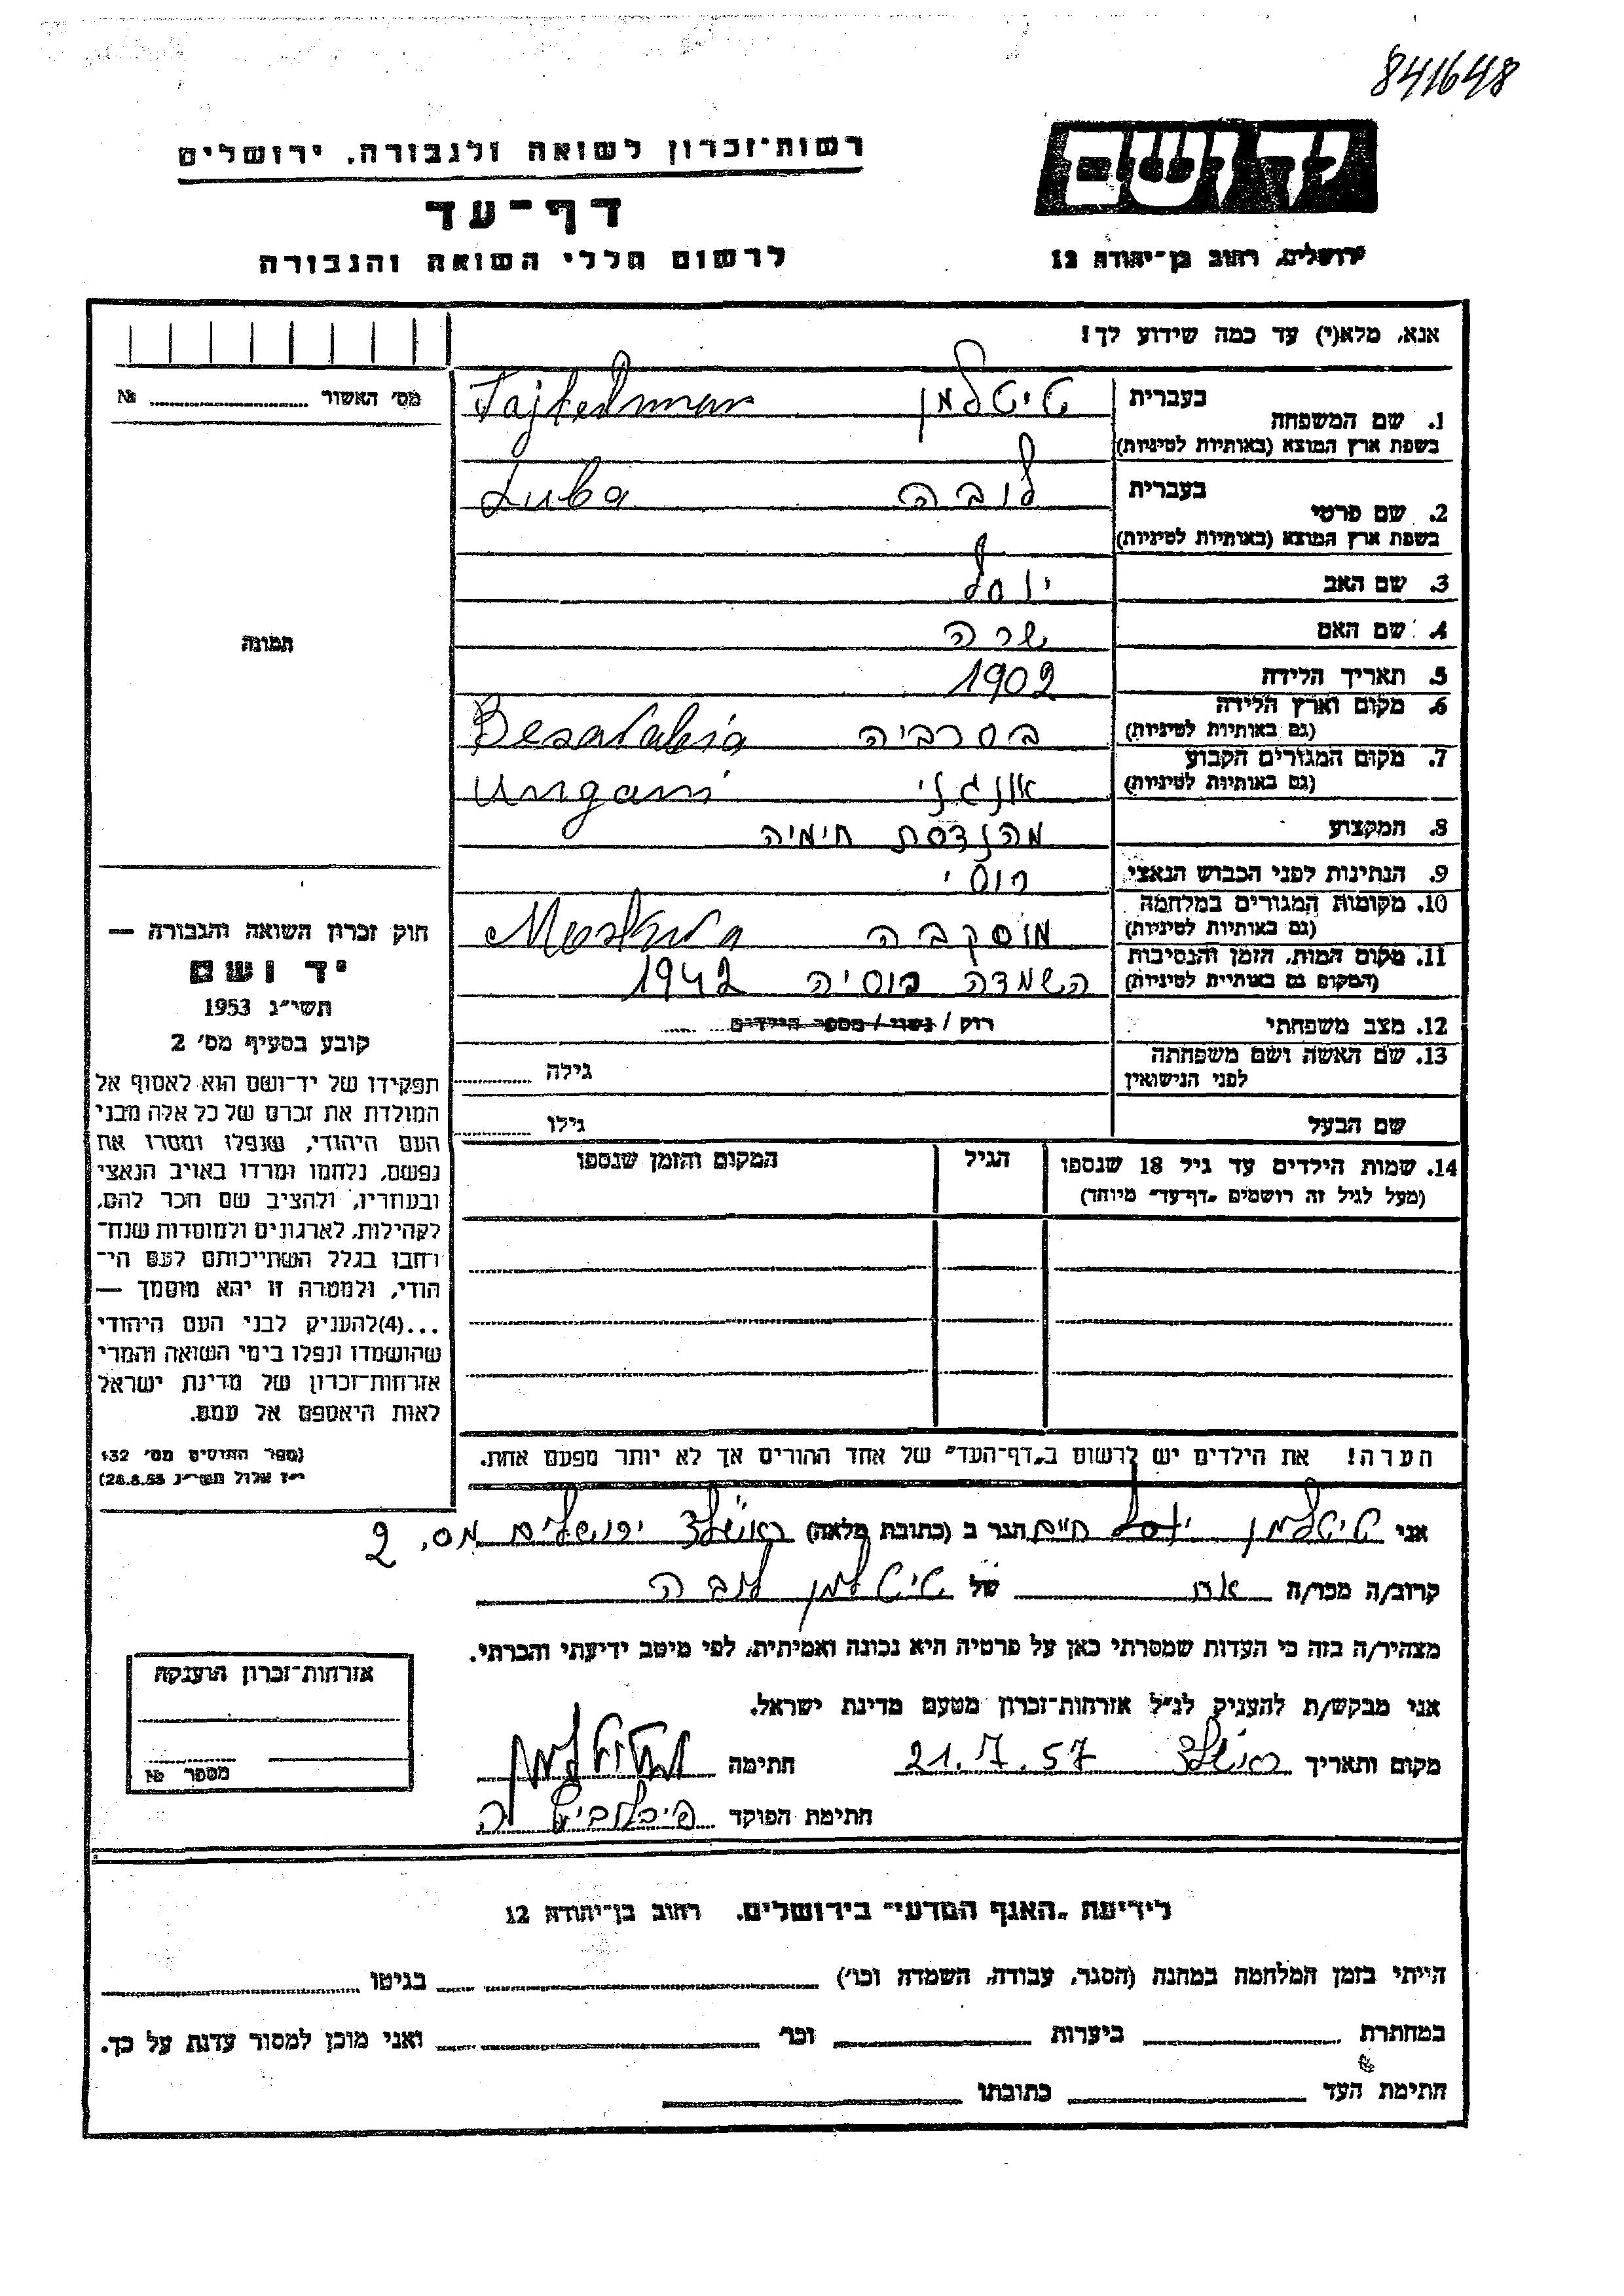 841648
יד ושם
רשות־זכרון לשואה ולגבורה, ירושלים
דף־עד
לרשום חללי השואה והגבורה
ירושלים, רחוב בן־יהודה 12
אנא, מלא(י) עד כמה שידוע לך!
מס' האשור № 
תמונה
1. שם המשפחה בעברית טיטלמן Tajtelman
בשפת ארץ המוצא (באותיות לטיניות)
2. שם פרטי בעברית לובה Luba
בשפת ארץ המוצא (באותיות לטיניות)
3. שם האב יוסף
4. שם האם שרה
5. תאריך הלידה 1902
6. מקום וארץ הלידה בסרביה Besarabia
(גם באותיות לטיניות)
7. מקום המגורים הקבוע אונגני Ungani
(גם באותיות לטיניות)
8. המקצוע מהנדסת חימיה
9. הנתינות לפני הכבוש הנאצי רוסי
10. מקומות המגורים במלחמה מוסקבה Moskwa
(גם באותיות לטיניות)
11. מקום המות, הזמן והנסיבות השמדה רוסיה 1942
(המקום גם באותיות לטיניות)
12. מצב משפחתי רוק / נשוי / מספר הילדים
13. שם האשה ושם משפחתה גילה
לפני הנישואין
שם הבעל גילו
14. שמות הילדים עד גיל 18 שנספו הגיל המקום והזמן שנספו
(מעל לגיל זה רושמים „דף־עד" מיוחד)
הערה! את הילדים יש לרשום ב„דף־העד" של אחד ההורים אך לא יותר מפעם אחת.
חוק זכרון השואה והגבורה —
יד ושם
תשי"ג 1953
קובע בסעיף מס' 2
תפקידו של יד־ושם הוא לאסוף אל
המולדת את זכרם של כל אלה מבני
העם היהודי, שנפלו ומסרו את
נפשם, נלחמו ומרדו באויב הנאצי
ובעוזריו, ולהציב שם וזכר להם,
לקהילות, לארגונים ולמוסדות שנח־
רבו בגלל השתייכותם לעם הי־
הודי, ולמטרה זו יהא מוסמך —
...(4)להעניק לבני העם היהודי
שהושמדו ונפלו בימי השואה והמרי
אזרחות־זכרון של מדינת ישראל
לאות היאספם אל עמם.
(ספר החוקים מס' 132
י"ז אלול תשי"ג 28.8.53)
אני טיטלמן יוסף חיים הגר ב (כתובת מלאה) ירושלים מס. 2
קרוב/ה מכר/ה אח של טיטלמן לובה
מצהיר/ה בזה כי העדות שמסרתי כאן על פרטיה היא נכונה ואמיתית, לפי מיטב ידיעתי והכרתי.
אני מבקש/ת להעניק לנ"ל אזרחות־זכרון מטעם מדינת ישראל.
מקום ותאריך 21.7.57 חתימה
חתימת הפוקד
אזרחות־זכרון הוענקה
מספר №
לידיעת „האגף המדעי" בירושלים, רחוב בן־יהודה 12
הייתי בזמן המלחמה במחנה (הסגר, עבודה, השמדה וכו') בגיטו
במחתרת ביערות וכו' ואני מוכן למסור עדות על כך.
חתימת העד כתובתו